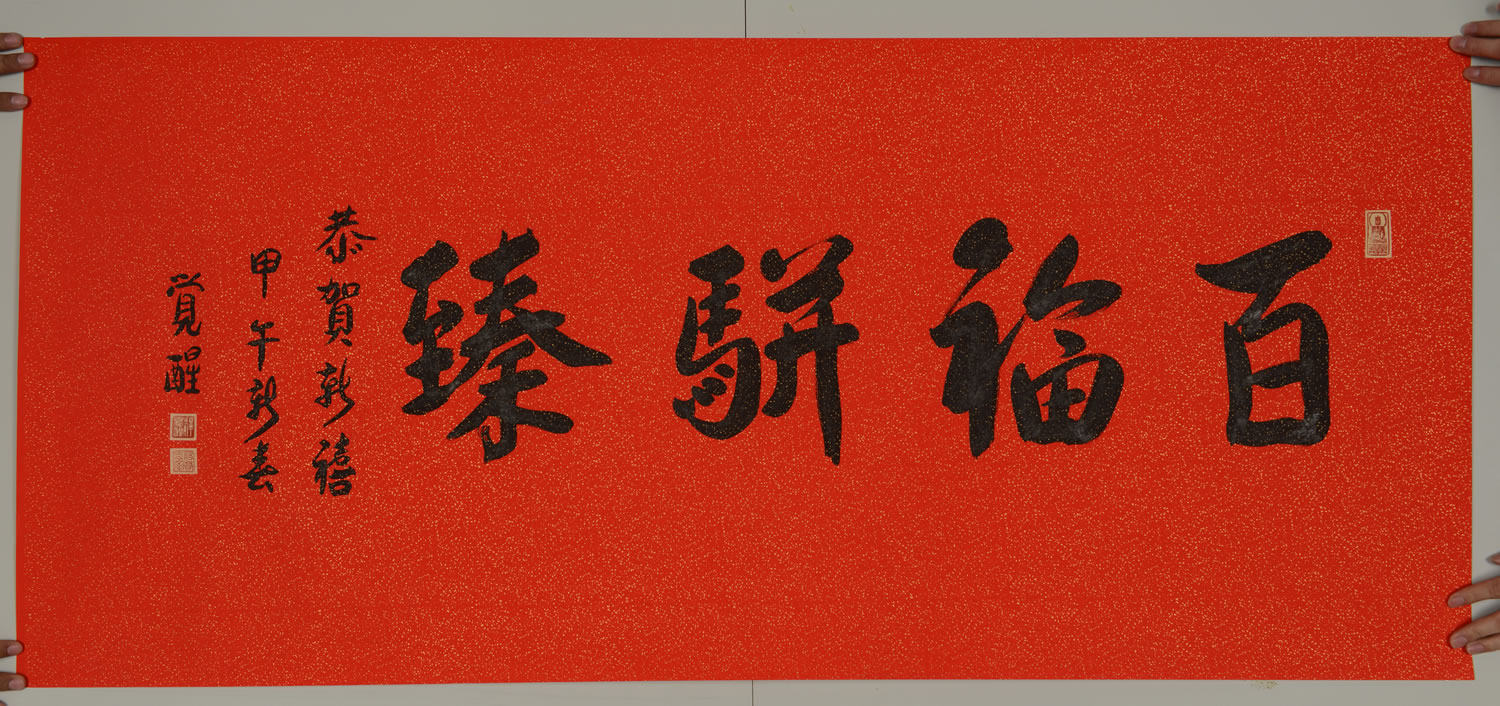 百福駢臻
恭賀新禧
甲午新春
覺醒